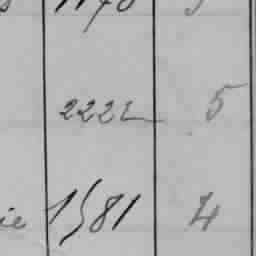 2222 5
ie 1581 4